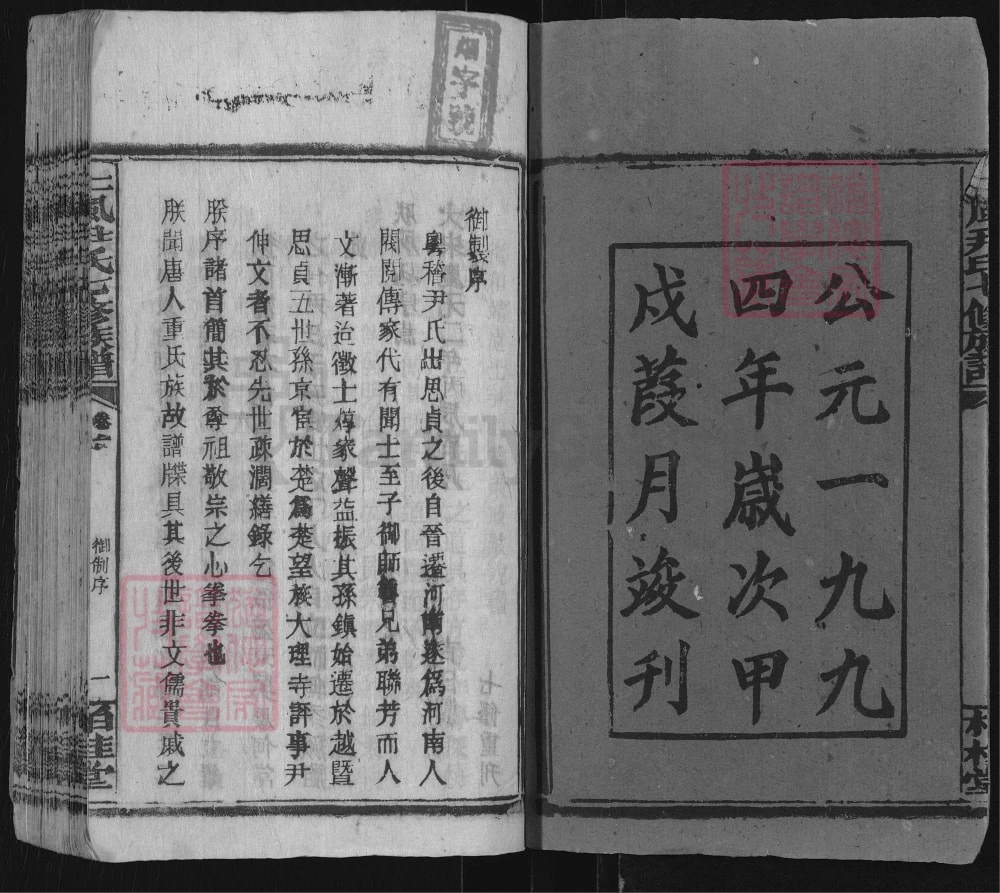 公元一九九
四年歲次甲
戍葭月竣刊
字號
御製序
粵稽尹氏出思貞之後自晉遷河南遂爲河南人
閥閱傳家代有聞士至子御師魯兄弟聯芳而人
文漸著迨徵士焞家聲益振其孫鎮始遷於越暨
思貞五世孫京宦於楚爲楚望族大理寺評事尹
伸文者不忍先世疎濶繕錄乞
朕序諸首簡其於尊祖敬宗之心拳拳也
朕聞唐人重氏族故譜牒具其後世非文儒貴戚之
尹氏七修族譜
卷首
御制序
一
桂堂
七修重刊